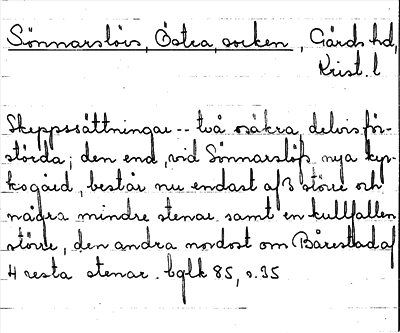 Sönnarslövs, Östra, socken, Gärds hd,
Krist. l
Skeppssättningar -- två osäkra, delvis för-
störda; den end, vid Sönnarslöfs nya kyr-
kogård, består nu endast af 3 större och
några mindre stenar samt en kullfallen
större, den andra nordost om Bårestad af
4 resta stenar. bglk 85, s. 35